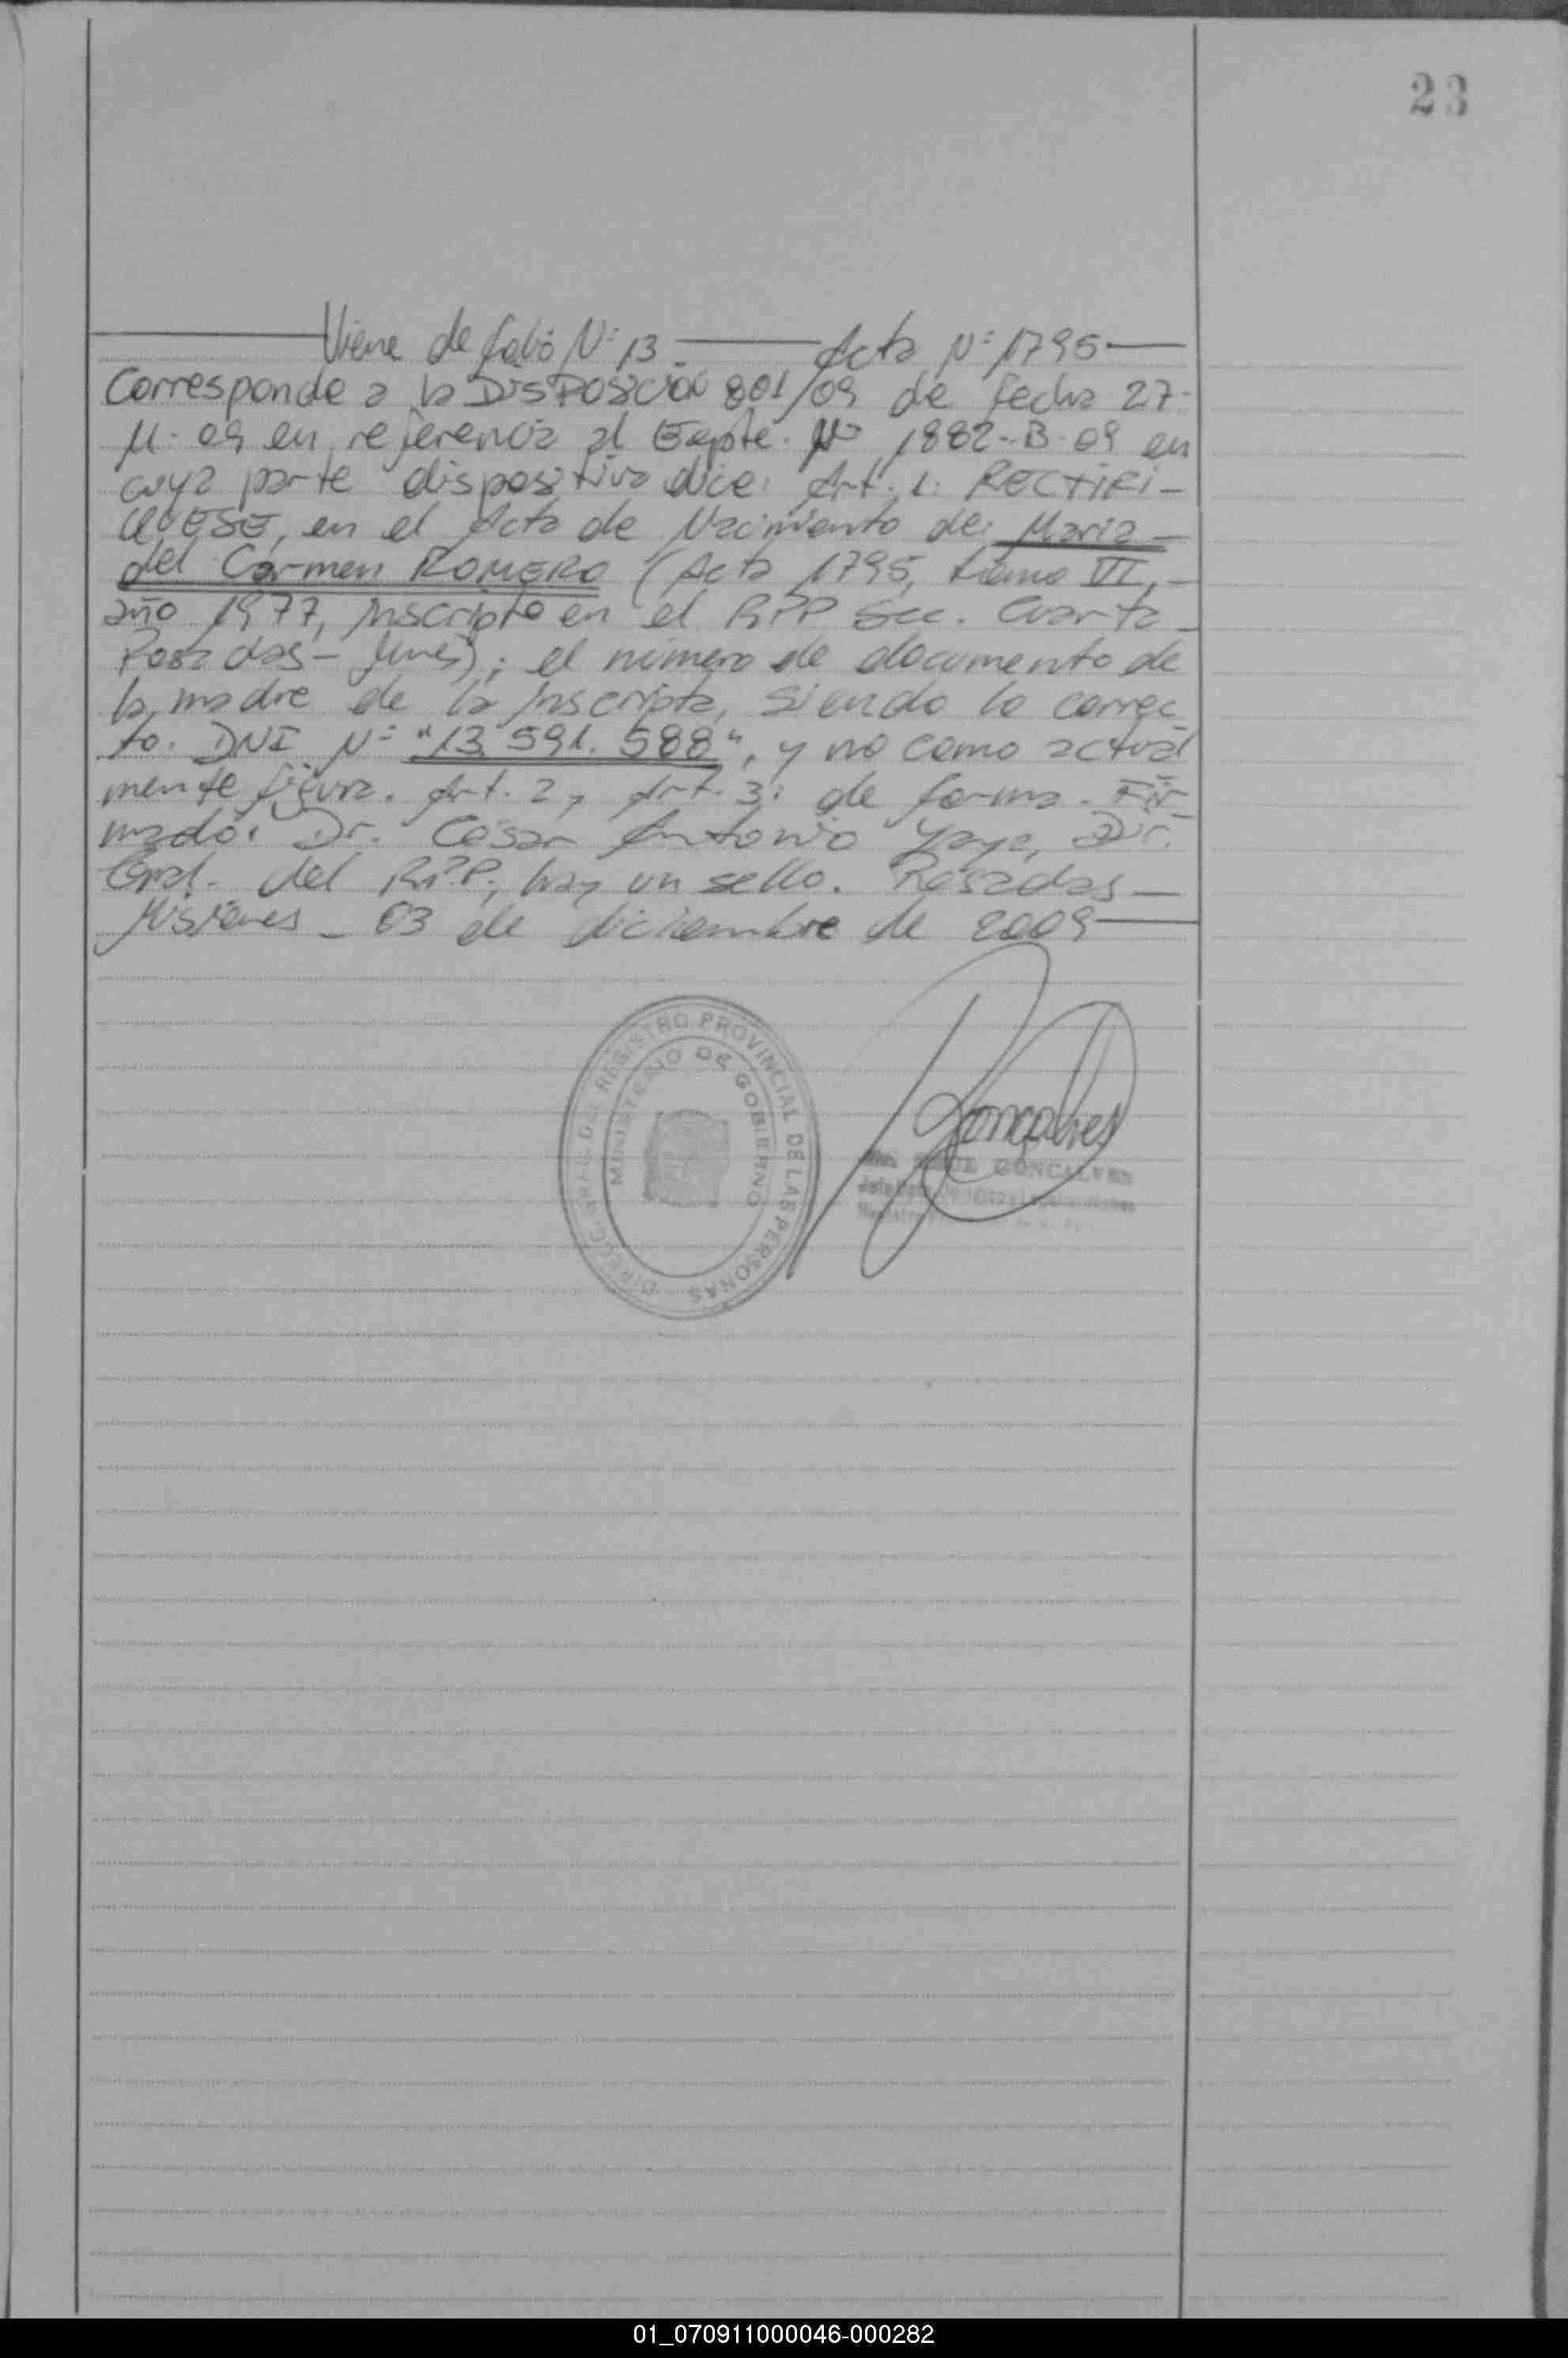 23
Viene de folio N: 13. Acta N: 1795
Corresponde a la DISPOSICIÓN 801/09 de fecha 27-
11-09 en referencia al Expte. Nº 1882-B-09 en
cuya parte dispositiva dice: Art. 1: RECTIFI-
QUESE, en el Acta de Nacimiento de: Maria
del Carmen ROMERO (Acta 1795, tomo VI,
año 1977, inscripto en el RPP Sec. Cuarta
Posadas - Mnes); el número de documento de
la madre de la inscripta, siendo lo correc_
to. DNI N: "13.591.588", y no como actual
mente figura. Art. 2, Art. 3: de forma. Fir_
mado: Dr. César Antonio Yaya, Dir.
Gral. del RPP, hay un sello. Posadas -
Misiones - 03 de diciembre de 2009
DIRECC. GRAL. DEL REGISTRO PROVINCIAL DE LAS PERSONAS
MINISTERIO DE GOBIERNO
Gonçalves
GONCALVES
01_070911000046-000282